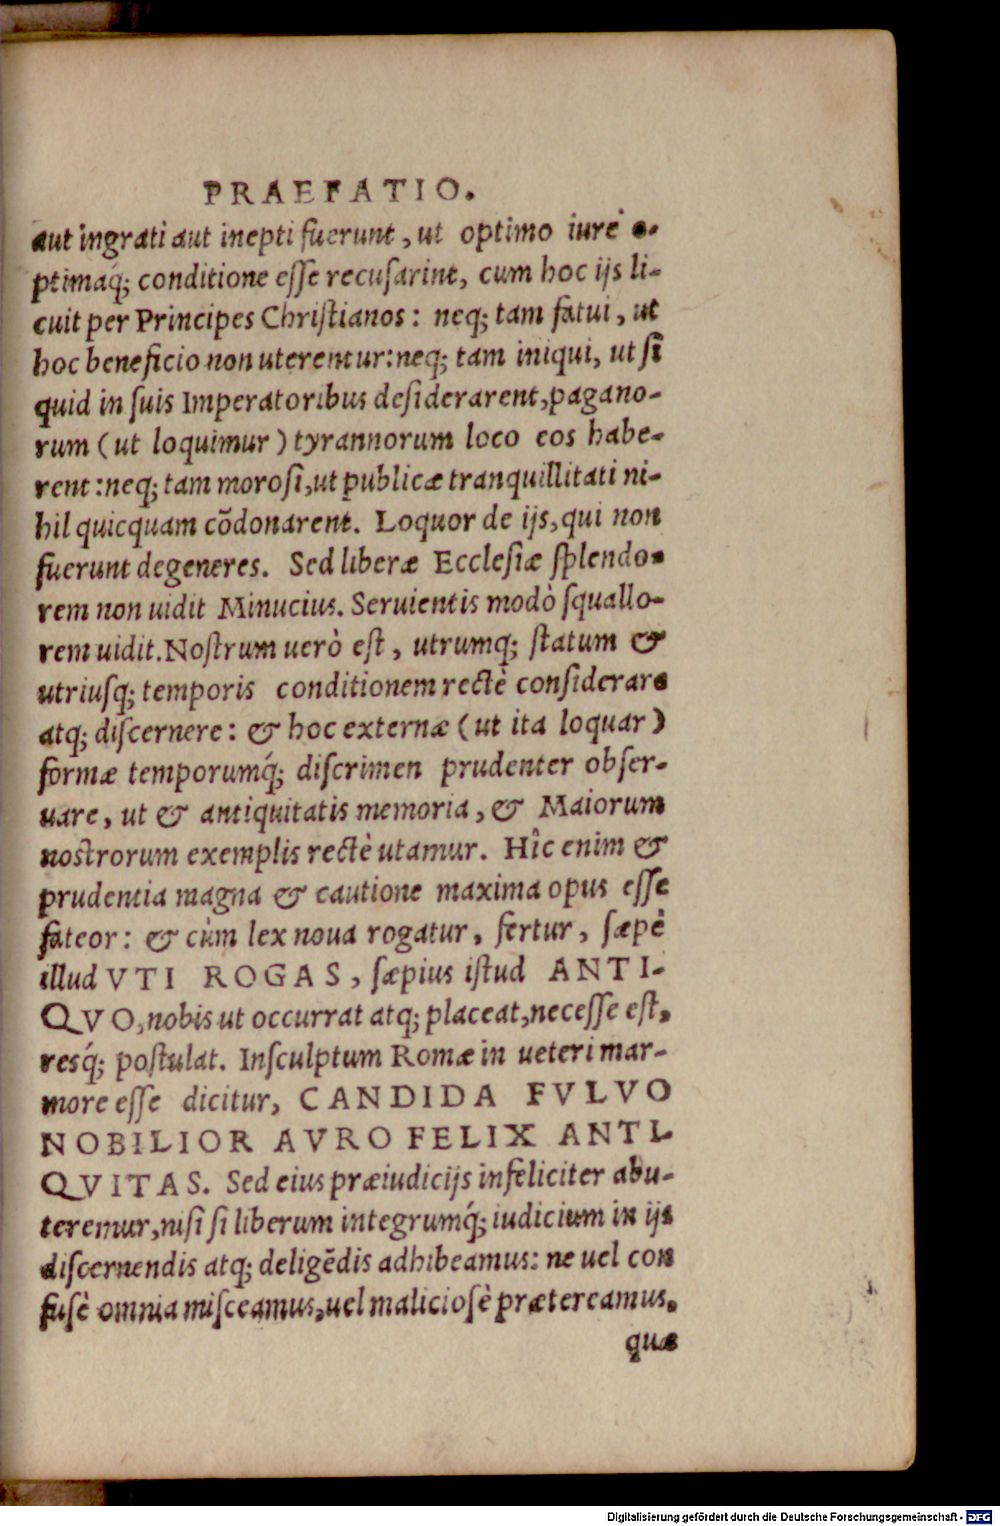 PRAEFATIO.
aut ingrati aut inepti fuerunt, ut optimo iure o-
ptimaq́; conditione eſſe recuſarint, cum hoc ijs li-
cuit per Principes Chriſtianos: neq; tam fatui, ut
hoc beneficio non uterentur: neq; tam iniqui, ut ſi
quid in ſuis Imperatoribus deſiderarent, pagano-
rum (ut loquimur) tyrannorum loco eos habe-
rent: neq; tam moroſi, ut publicæ tranquillitati ni-
hil quicquam cõdonarent. Loquor de ijs, qui non
fuerunt degeneres. Sed liberæ Eccleſiæ ſplendo-
rem non uidit Minucius. Seruientis modò ſquallo-
rem uidit. Noſtrum uerò eſt, utrumq; ſtatum &
utriuſq; temporis conditionem rectè conſiderare
atq; diſcernere: & hoc externæ (ut ita loquar)
formæ temporumq́; diſcrimen prudenter obſer-
uare, ut & antiquitatis memoria, & Maiorum
noſtrorum exemplis rectè utamur. Hîc enim &
prudentia magna & cautione maxima opus eſſe
fateor: & cùm lex noua rogatur, fertur, ſæpè
illud VTI ROGAS, ſæpius iſtud ANTI-
QVO, nobis ut occurrat atq; placeat, neceſſe eſt,
resq́; poſtulat. Inſculptum Romæ in ueteri mar-
more eſſe dicitur, CANDIDA FVLVO
NOBILIOR AVRO FELIX ANTI-
QVITAS. Sed eius præiudicijs infeliciter abu-
teremur, niſi ſi liberum integrumq́; iudicium in ijs
diſcernendis atq; deligẽdis adhibeamus: ne uel con
fuſè omnia miſceamus, uel malicioſè prætereamus,
quæ
Digitalisierung gefördert durch die Deutsche Forschungsgemeinschaft - DFG